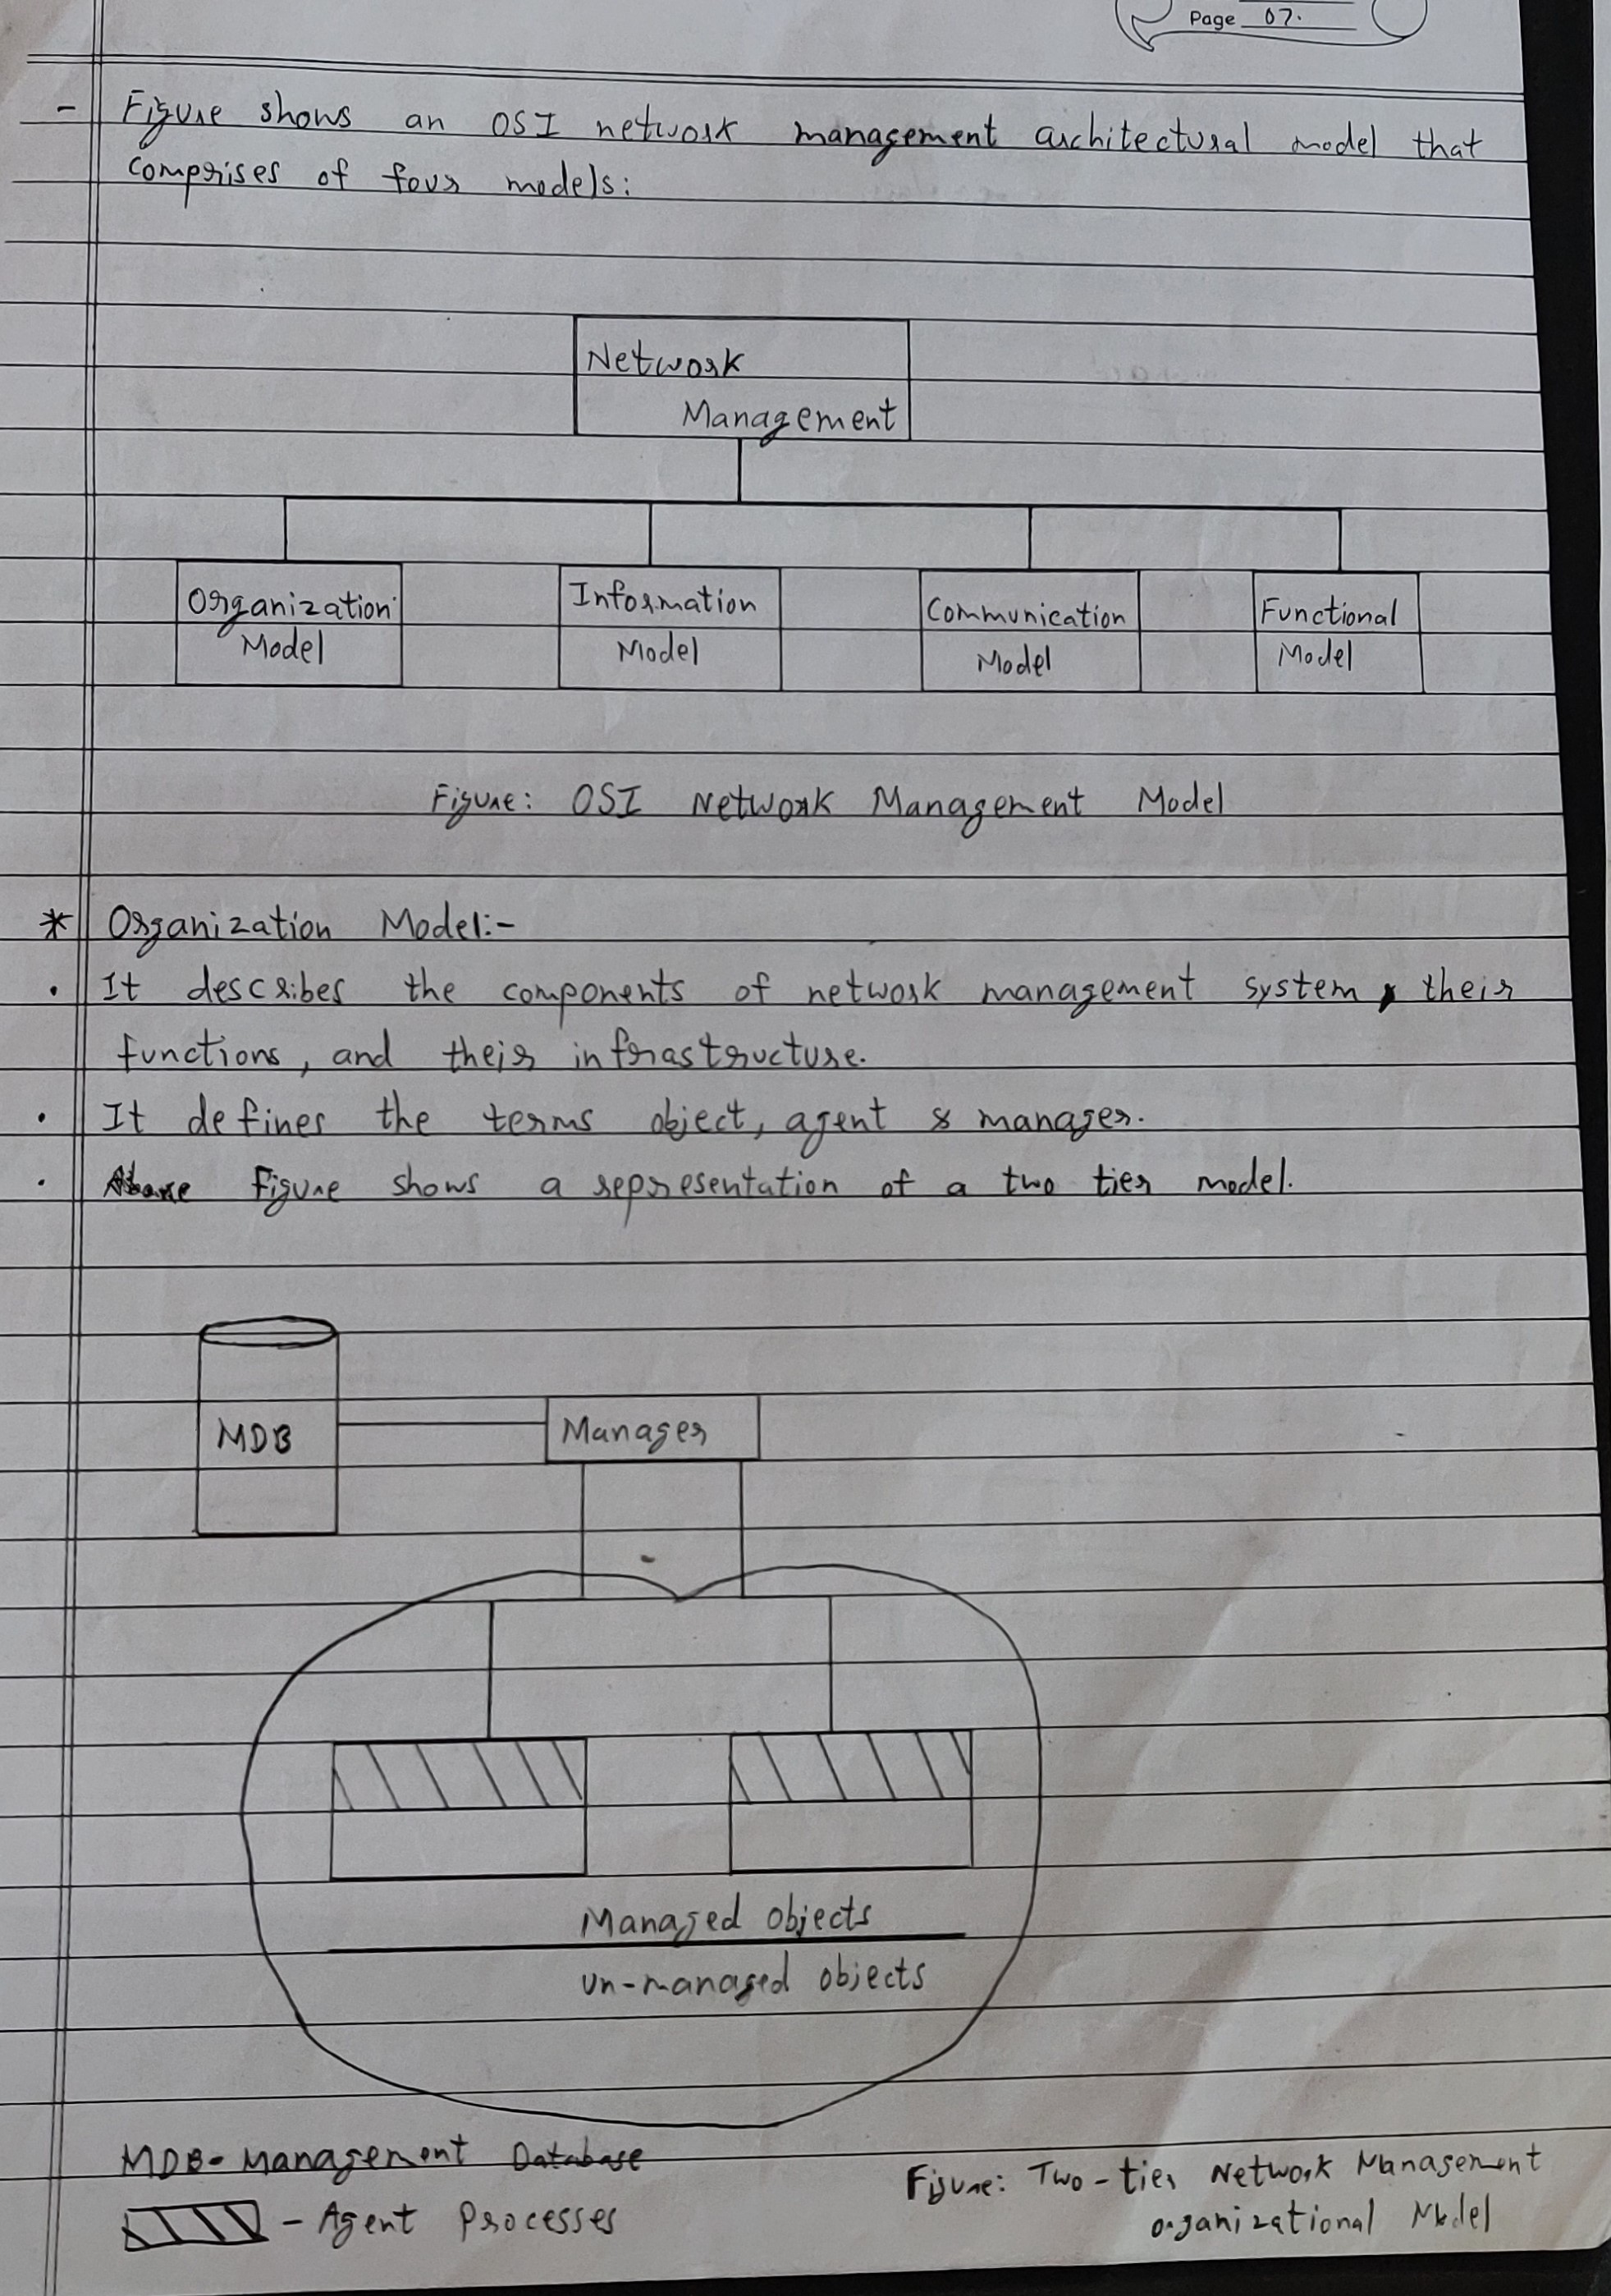 Page 07.
- Figure shows an OSI network management architectural model that
comprises of four models:
Network
Management
Organization
Model
Information
Model
Communication
Model
Functional
Model
Figure: OSI Network Management Model
* Organization Model:-
• It describes the components of network management system, their
functions, and their infrastructure.
• It defines the terms object, agent & manager.
• Above Figure shows a representation of a two tier model.
MDB
Manager
Managed objects
un-managed objects
MDB- Management Database
- Agent Processes
Figure: Two-tier Network Management
organizational Model